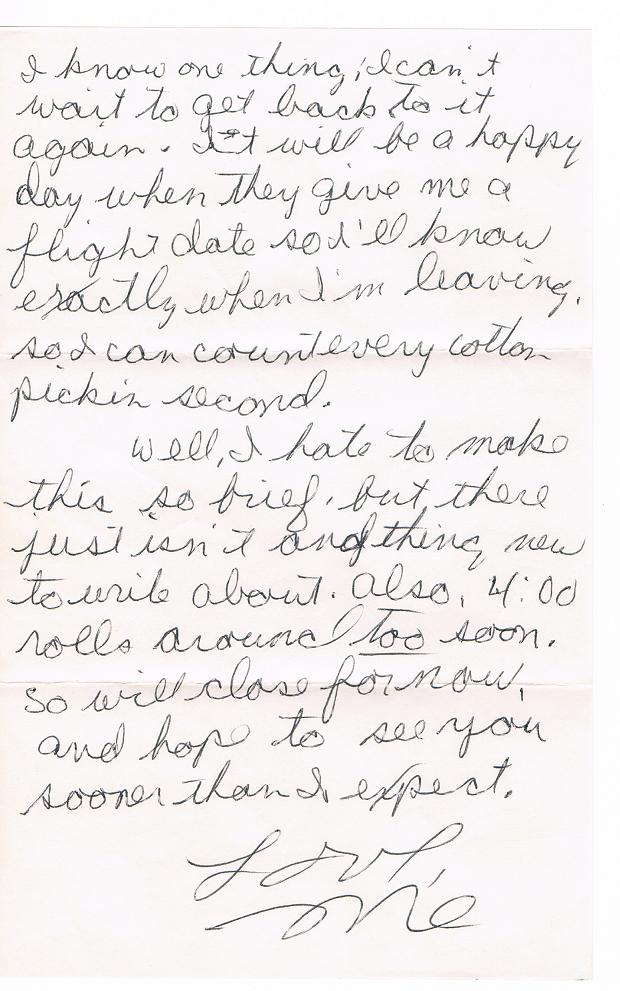 I know one thing, I can't
wait to get back to it
again. It will be a happy
day when they give me a
flight date so I'll know
exactly when I'm leaving,
so I can count every cotton
pickin second.
Well, I hate to make
this so brief, but there
just isn't anything new
to write about. Also, 4:00
rolls around too soon.
So will close for now,
and hope to see you
sooner than I expect.
Love,
Me